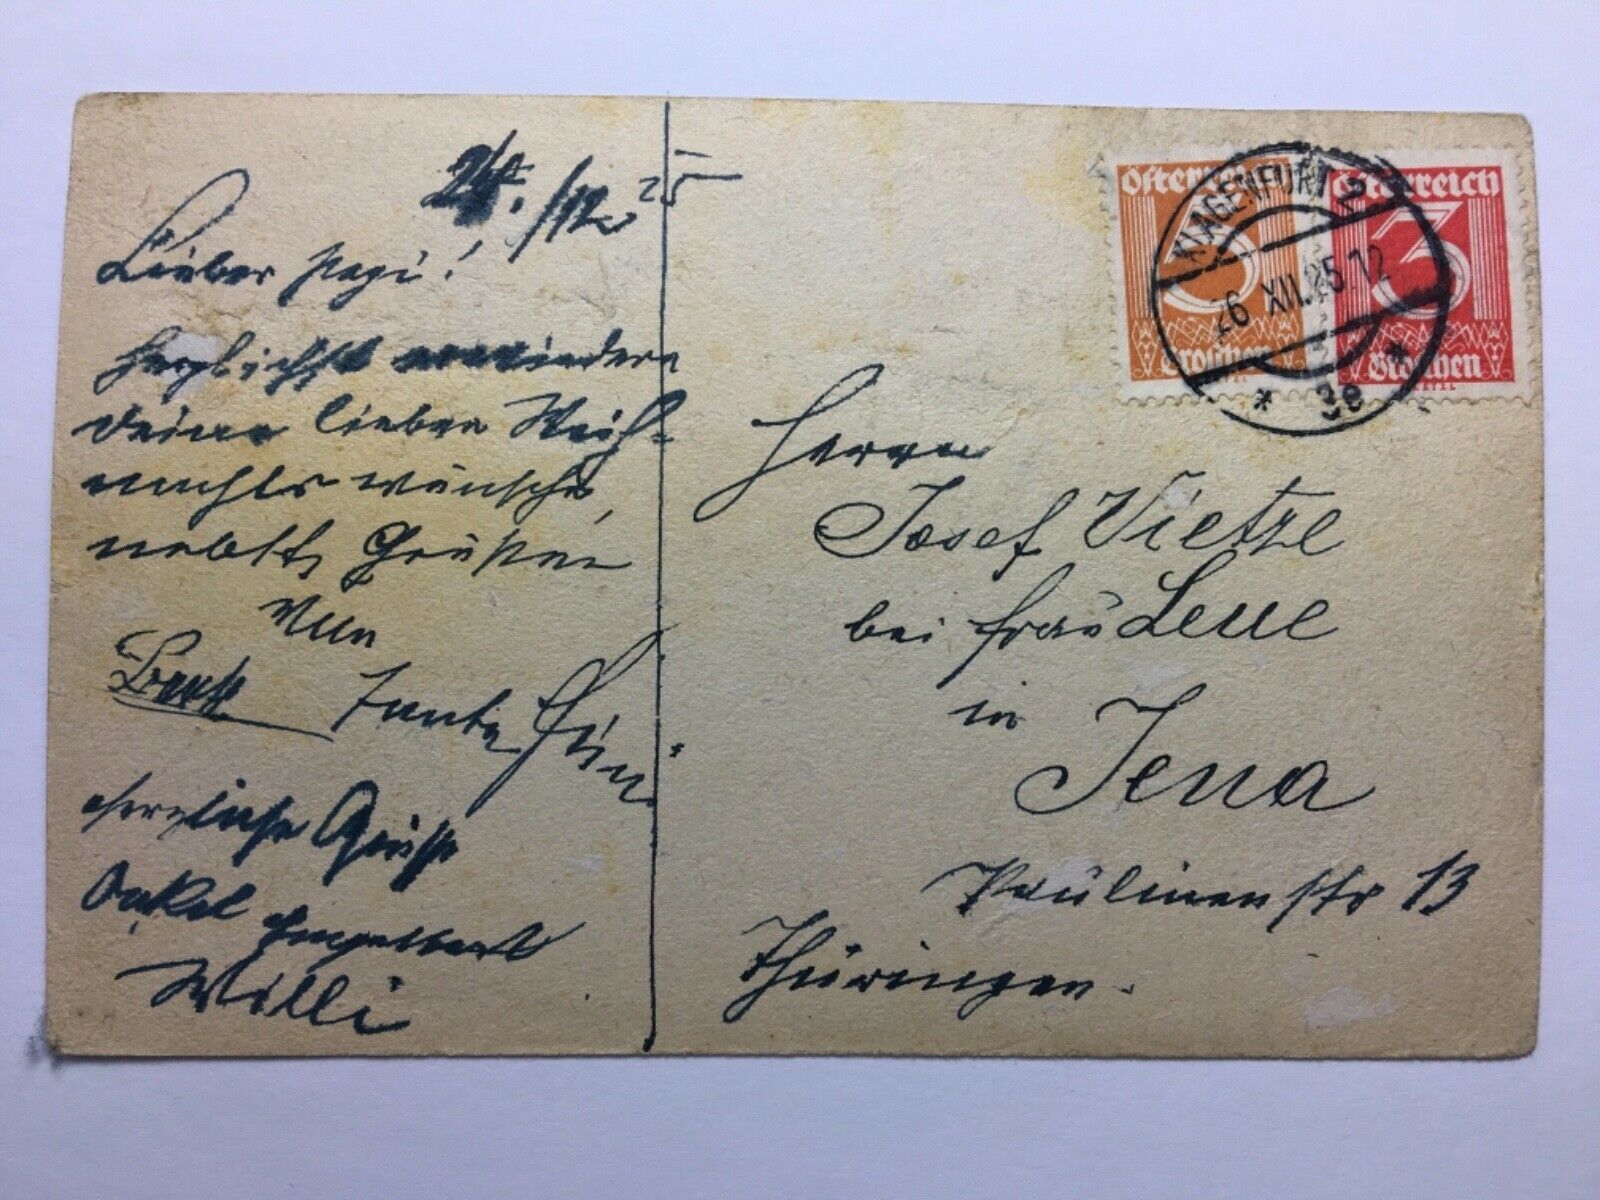 24./12 25
Lieber Pepi!
Herzlichst erwiedern
Deine lieben Weih-
nachtswünsche,
nebst Grüßen
von
Tante Fini
herzliche Grüße
Onkel Engelbert
Willi
Österreich
5
Groschen
Österreich
3
Groschen
KLAGENFURT 2
26. XII. 25. 12
* 3e *
Herrn
Josef Vietze
bei Frau Leue
in
Jena
Paulinenstr 13
Thüringen.